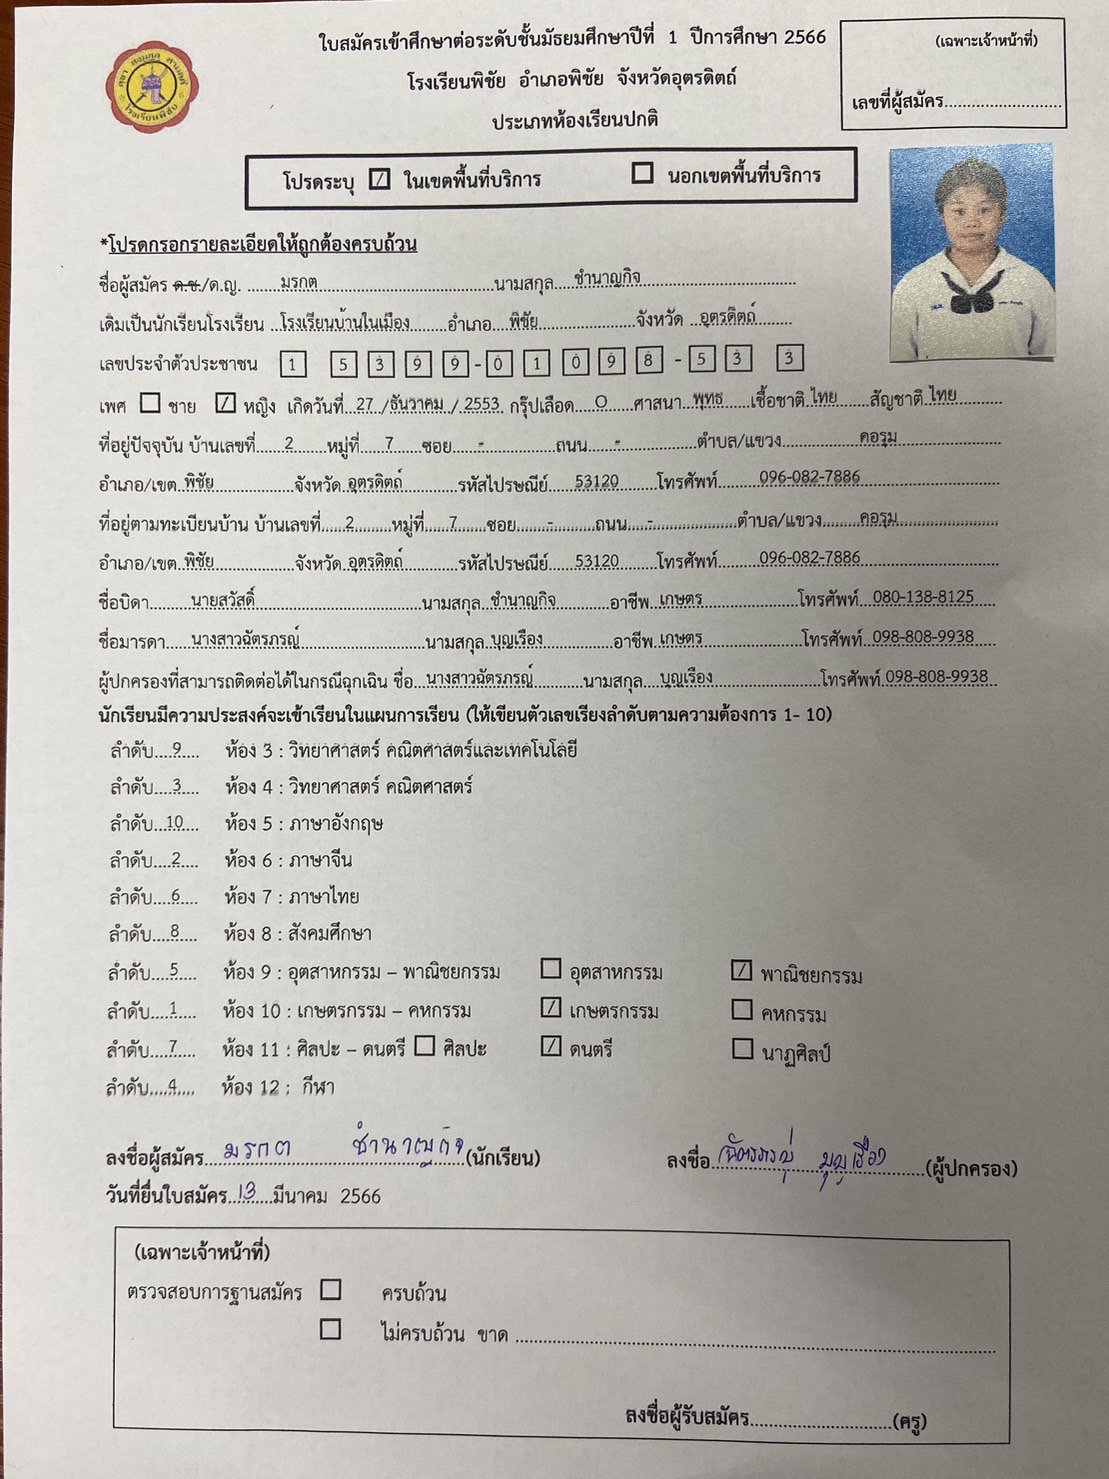 ใบสมัครเข้าศึกษาต่อระดับชั้นมัธยมศึกษาปีที่ 1 ปีการศึกษา 2566
(เฉพาะเจ้าหน้าที่)
โรงเรียนพิชัย อำเภอพิชัย จังหวัดอุตรดิตถ์
เลขที่ผู้สมัคร............................
ประเภทห้องเรียนปกติ
โปรดระบุ ☑ ในเขตพื้นที่บริการ ☐ นอกเขตพื้นที่บริการ
*โปรดกรอกรายละเอียดให้ถูกต้องครบถ้วน
ชื่อผู้สมัคร ด.ช./ด.ญ. ......มรกต......นามสกุล....ชำนาญกิจ......
เดิมเป็นนักเรียนโรงเรียน ..โรงเรียนบ้านในเมือง......อำเภอ...พิชัย......จังหวัด ..อุตรดิตถ์......
เลขประจำตัวประชาชน 1 5 3 9 9 - 0 1 0 9 8 - 5 3 3
เพศ ☐ ชาย ☑ หญิง เกิดวันที่..27../ธันวาคม../..2553. กรุ๊ปเลือด...O....ศาสนา..พุทธ....เชื้อชาติ.ไทย.... สัญชาติ.ไทย......
ที่อยู่ปัจจุบัน บ้านเลขที่.....2......หมู่ที่.....7.....ซอย....-......ถนน.....-......ตำบล/แขวง......คอรุม......
อำเภอ/เขต.พิชัย......จังหวัด.อุตรดิตถ์......รหัสไปรษณีย์....53120......โทรศัพท์......096-082-7886......
ที่อยู่ตามทะเบียนบ้าน บ้านเลขที่....2.......หมู่ที่....7.....ซอย ....-......ถนน....-......ตำบล/แขวง......คอรุม......
อำเภอ/เขต.พิชัย......จังหวัด.อุตรดิตถ์......รหัสไปรษณีย์....53120......โทรศัพท์......096-082-7886......
ชื่อบิดา......นายสวัสดิ์......นามสกุล..ชำนาญกิจ......อาชีพ..เกษตร......โทรศัพท์..080-138-8125....
ชื่อมารดา....นางสาวฉัตรภรณ์......นามสกุล.บุญเรือง......อาชีพ..เกษตร......โทรศัพท์.098-808-9938....
ผู้ปกครองที่สามารถติดต่อได้ในกรณีฉุกเฉิน ชื่อ..นางสาวฉัตรภรณ์......นามสกุล...บุญเรือง......โทรศัพท์.098-808-9938..
นักเรียนมีความประสงค์จะเข้าเรียนในแผนการเรียน (ให้เขียนตัวเลขเรียงลำดับตามความต้องการ 1- 10)
ลำดับ...9.... ห้อง 3 : วิทยาศาสตร์ คณิตศาสตร์และเทคโนโลยี
ลำดับ...3.... ห้อง 4 : วิทยาศาสตร์ คณิตศาสตร์
ลำดับ...10.... ห้อง 5 : ภาษาอังกฤษ
ลำดับ...2.... ห้อง 6 : ภาษาจีน
ลำดับ...6.... ห้อง 7 : ภาษาไทย
ลำดับ...8.... ห้อง 8 : สังคมศึกษา
ลำดับ...5.... ห้อง 9 : อุตสาหกรรม – พาณิชยกรรม ☐ อุตสาหกรรม ☑ พาณิชยกรรม
ลำดับ...1.... ห้อง 10 : เกษตรกรรม – คหกรรม ☑ เกษตรกรรม ☐ คหกรรม
ลำดับ...7.... ห้อง 11 : ศิลปะ – ดนตรี ☐ ศิลปะ ☑ ดนตรี ☐ นาฏศิลป์
ลำดับ....4.... ห้อง 12 : กีฬา
ลงชื่อผู้สมัคร...มรกต ชำนาญกิจ(นักเรียน) ลงชื่อ.ฉัตรภรณ์ บุญเรือง......(ผู้ปกครอง)
วันที่ยื่นใบสมัคร..13....มีนาคม 2566
(เฉพาะเจ้าหน้าที่)
ตรวจสอบการฐานสมัคร ☐ ครบถ้วน
☐ ไม่ครบถ้วน ขาด ............................
ลงชื่อผู้รับสมัคร............................(ครู)